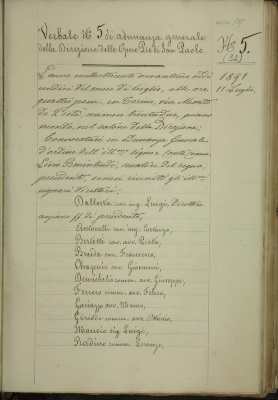 Verbale N.° 5 di adunanza generale
della Direzione delle Opere Pie di San Paolo.
N.° 5.
(32)
1891
11 Luglio.
L'anno milleottocento novantuno addì
undici del mese di luglio, alle ore
quattro pom., in Torino, via Monte
di Pietà, numero trentadue, piano
secondo, nel salone della Direzione;
Convocatasi in adunanza generale
d'ordine dell'ill.mo signor conte comm.
Livio Benintendi, senatore del regno,
presidente, sonosi riuniti gli ill.mi
signori direttori;
Dallosta cav. ing. Luigi, Direttore
anziano ff. di presidente,
Antonelli cav. ing. Costanzo,
Berletti cav. avv. Pietro,
Braida cav. Francesco,
Chapuis cav. Giovanni,
Demichelis comm. avv. Giuseppe,
Ferrero comm. avv. Felice,
Gariazzo avv. Mauro,
comm. avv. Ottavio,
Mancio sig. Luigi,
Radino comm. Lorenzo,